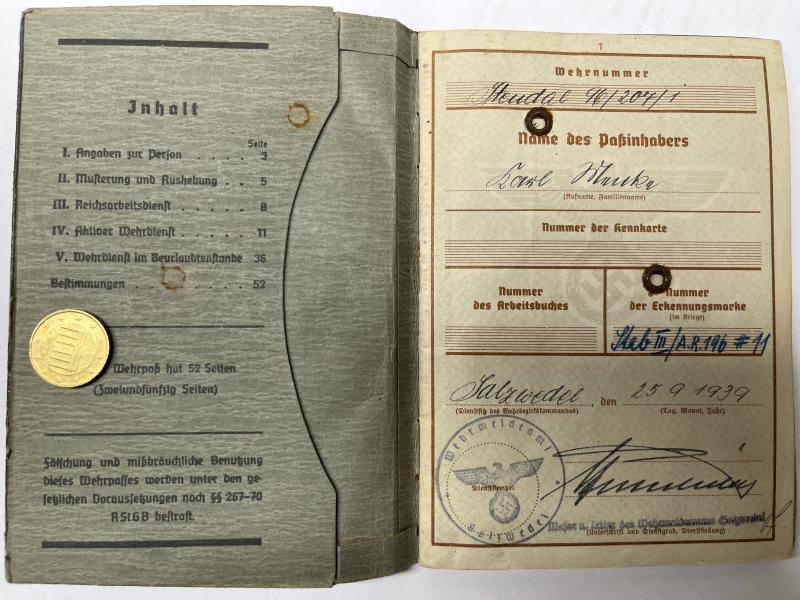 Inhalt
Seite
I. Angaben zur Person . . . . . 3
II. Musterung und Aushebung . . 5
III. Reichsarbeitsdienst . . . . . . 8
IV. Aktiver Wehrdienst . . . . . . 11
V. Wehrdienst im Beurlaubtenstande 36
Bestimmungen . . . . . . . . 52
Wehrpaß hat 52 Seiten
(Zweiundfünfzig Seiten)
Fälschung und mißbräuchliche Benutzung
dieses Wehrpasses werden unter den ge-
setzlichen Voraussetzungen nach §§ 267-70
RStGB bestraft.
1
Wehrnummer
Stendal 16/207/1
Name des Paßinhabers
Karl Menke
(Rufname, Familienname)
Nummer der Kennkarte
Nummer
des Arbeitsbuches
Nummer
der Erkennungsmarke
(im Kriege)
Stab III/A.R. 196 # 11
Salzwedel, den 25 9 1939
(Dienstsitz des Wehrbezirkskommandos) (Tag, Monat, Jahr)
Wehrmeldeamt
Dienststempel
Salzwedel
Major u. Leiter des Wehrmeldeamtes Salzwedel
(Unterschrift und Dienstgrad, Dienststellung)